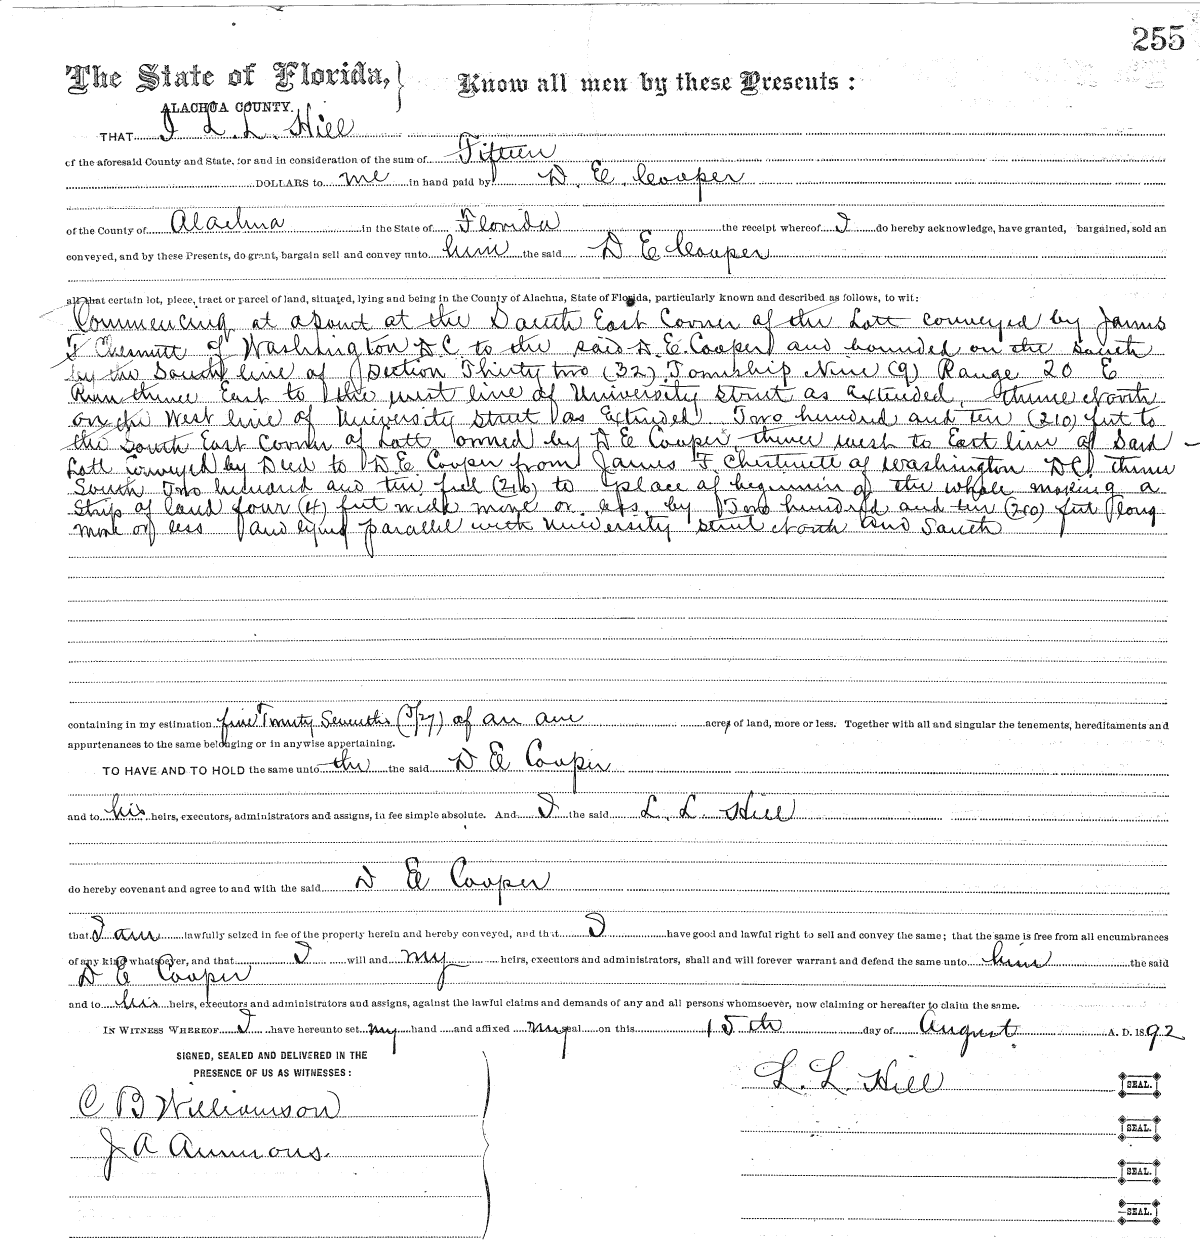 255
The State of Florida, Know all men by these Presents :
ALACHUA COUNTY.
THAT I L. L. Hill
of the aforesaid County and State, for and in consideration of the sum of Fifteen
DOLLARS to me in hand paid by D. E. Cooper
of the County of Alachua in the State of Florida the receipt whereof I do hereby acknowledge, have granted, bargained, sold an
conveyed, and by these Presents, do grant, bargain sell and convey unto him the said D E Cooper
all that certain lot, piece, tract or parcel of land, situated, lying and being in the County of Alachua, State of Florida, particularly known and described as follows, to wit:
Commencing at a point at the South East Corner of the Lott conveyed by James
T Chesnutt of Washington D C to the said D. E. Cooper and bounded on the South
by the South line of Section Thirty two (32) Township Nine (9) Range 20 E
Run thence East to the west line of University Street as Extended, thence North
on the West line of University Street as Extended Two hundred and ten (210) feet to
the South East Corner of Lott owned by D E Cooper thence west to East line of Said
Lott conveyed by Deed to D. E. Cooper from James F Chestnutt of Washington DC thence
South Two hundred and ten feet (210) to place of beginning of the whole making a
Strip of land four (4) feet wide more or less by Two hundred and ten (210) feet long
more or less and lying parallel with University street North and South
containing in my estimation five Twenty Sevenths (5/27) of an acre acres of land, more or less. Together with all and singular the tenements, hereditaments and
appurtenances to the same belonging or in anywise appertaining.
TO HAVE AND TO HOLD the same unto the the said D E Cooper
and to his heirs, executors, administrators and assigns, in fee simple absolute. And I the said L. L. Hill
do hereby covenant and agree to and with the said D E Cooper
that I am lawfully seized in fee of the property herein and hereby conveyed, and that I have good and lawful right to sell and convey the same; that the same is free from all encumbrances
of any kind whatsoever, and that I will and my heirs, executors and administrators, shall and will forever warrant and defend the same unto him the said
D E Cooper
and to his heirs, executors and administrators and assigns, against the lawful claims and demands of any and all persons whomsoever, now claiming or hereafter to claim the same.
IN WITNESS WHEREOF I have hereunto set my hand and affixed my seal on this 15th day of August A. D. 1892
SIGNED, SEALED AND DELIVERED IN THE
PRESENCE OF US AS WITNESSES :
L. L. Hill SEAL.
C B Williamson
SEAL.
J A Ammons.
SEAL.
SEAL.